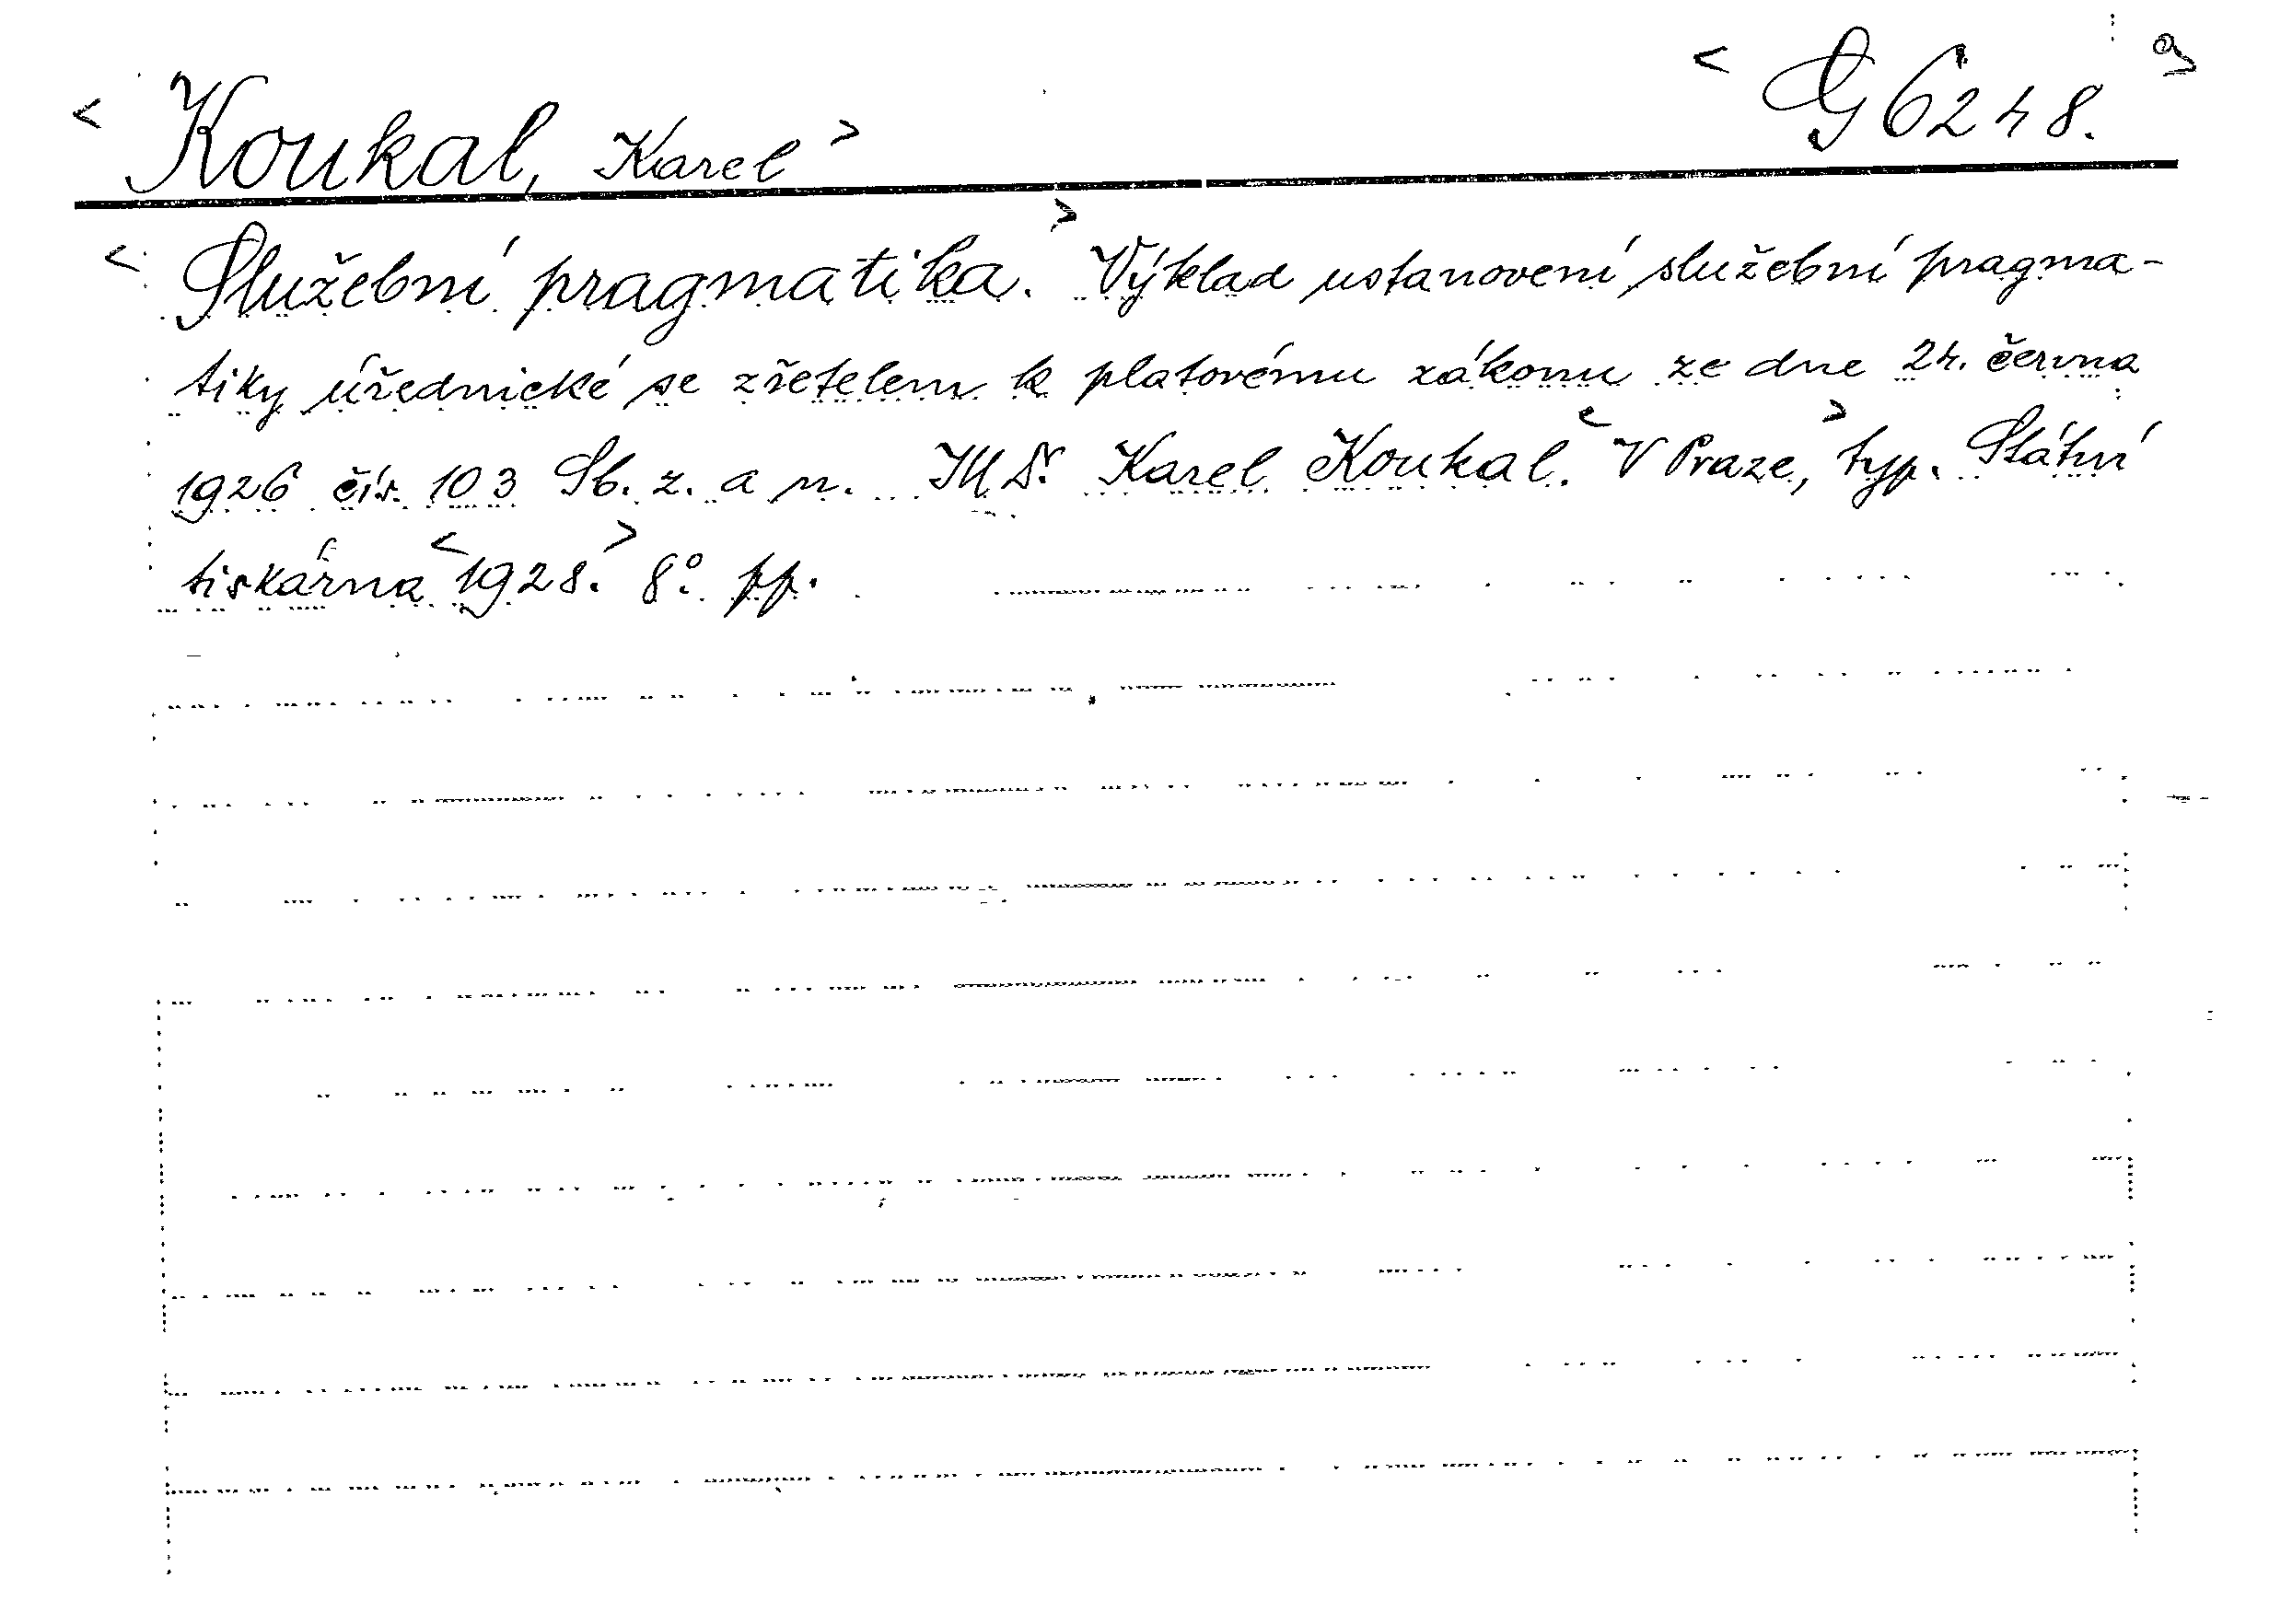 < Koukal, Karel > < G 6248. >
< Služební pragmatika. > Výklad ustanovení služební pragma-
tiky úřednické se zřetelem k platovému zákonu ze dne 24. června
1926 čís. 103 Sb. z. a n. JUDr. Karel Koukal. < V Praze, > typ. Státní
tiskárna < 1928. > 8°. pp.